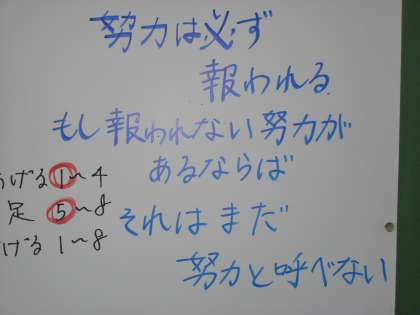 努力は必ず
報われる
もし報われない努力が
あるならば
それはまだ
努力と呼べない
げる 1~4
足 5~8
げる 1~8